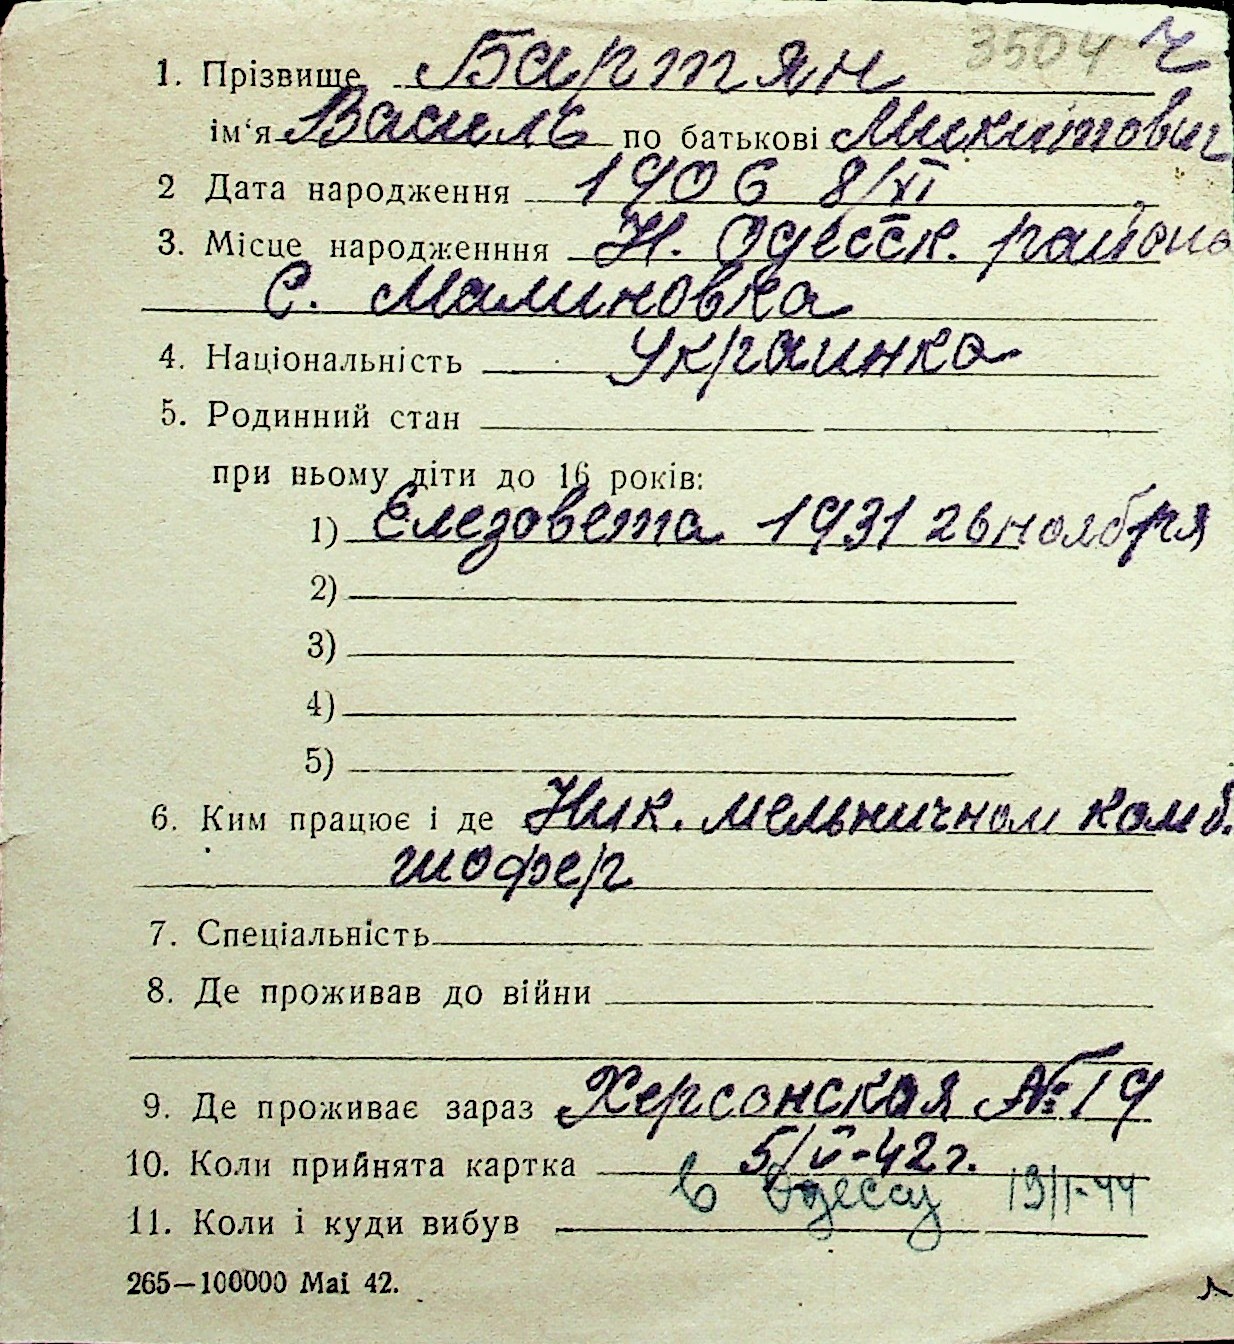 3504 Ч
1. Прізвище Бартян
ім‘я Василь по батькові Микитович
2 Дата народження 1906 8/XI
3. Місце народженння Н. Одесск. района
с. Малиновка
4. Національність Украинка
5. Родинний стан
при ньому діти до 16 років:
1) Елезовета 1931 26 ноября
2)
3)
4)
5)
6. Ким працює і де Ник. мельничном комб.
шофер
7. Спеціальність
8. Де проживав до війни
9. Де проживає зараз Херсонская № 19
10. Коли прийнята картка 5/V-42 г.
в Одессу 19/I-44
11. Коли і куди вибув
265—100000 Mai 42.